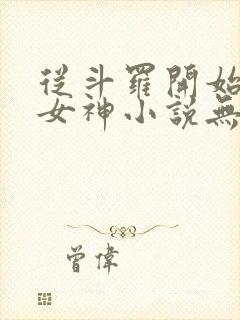 從斗羅開始
女神小說無
曾偉